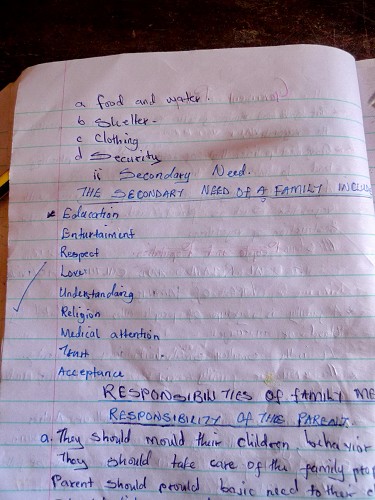 a food and water.
b Shelter-
c Clothing
d Security
ii Secondary Need.
THE SECONDARY NEED OF A FAMILY INCLU
Education
Entertaiment
Respect
Love
Understanding
Religion
Medical attention
Trust
Acceptance
RESPONSIBILITIES OF FAMILY ME
RESPONSIBILITY OF THE PARENT.
a. They should mould their children behavior
They should take care of the family prop
Parent should provid basic need to their